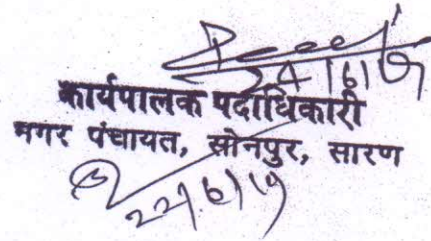 24/6/19
कार्यपालक पदाधिकारी
नगर पंचायत, सोनपुर, सारण
22/6/19